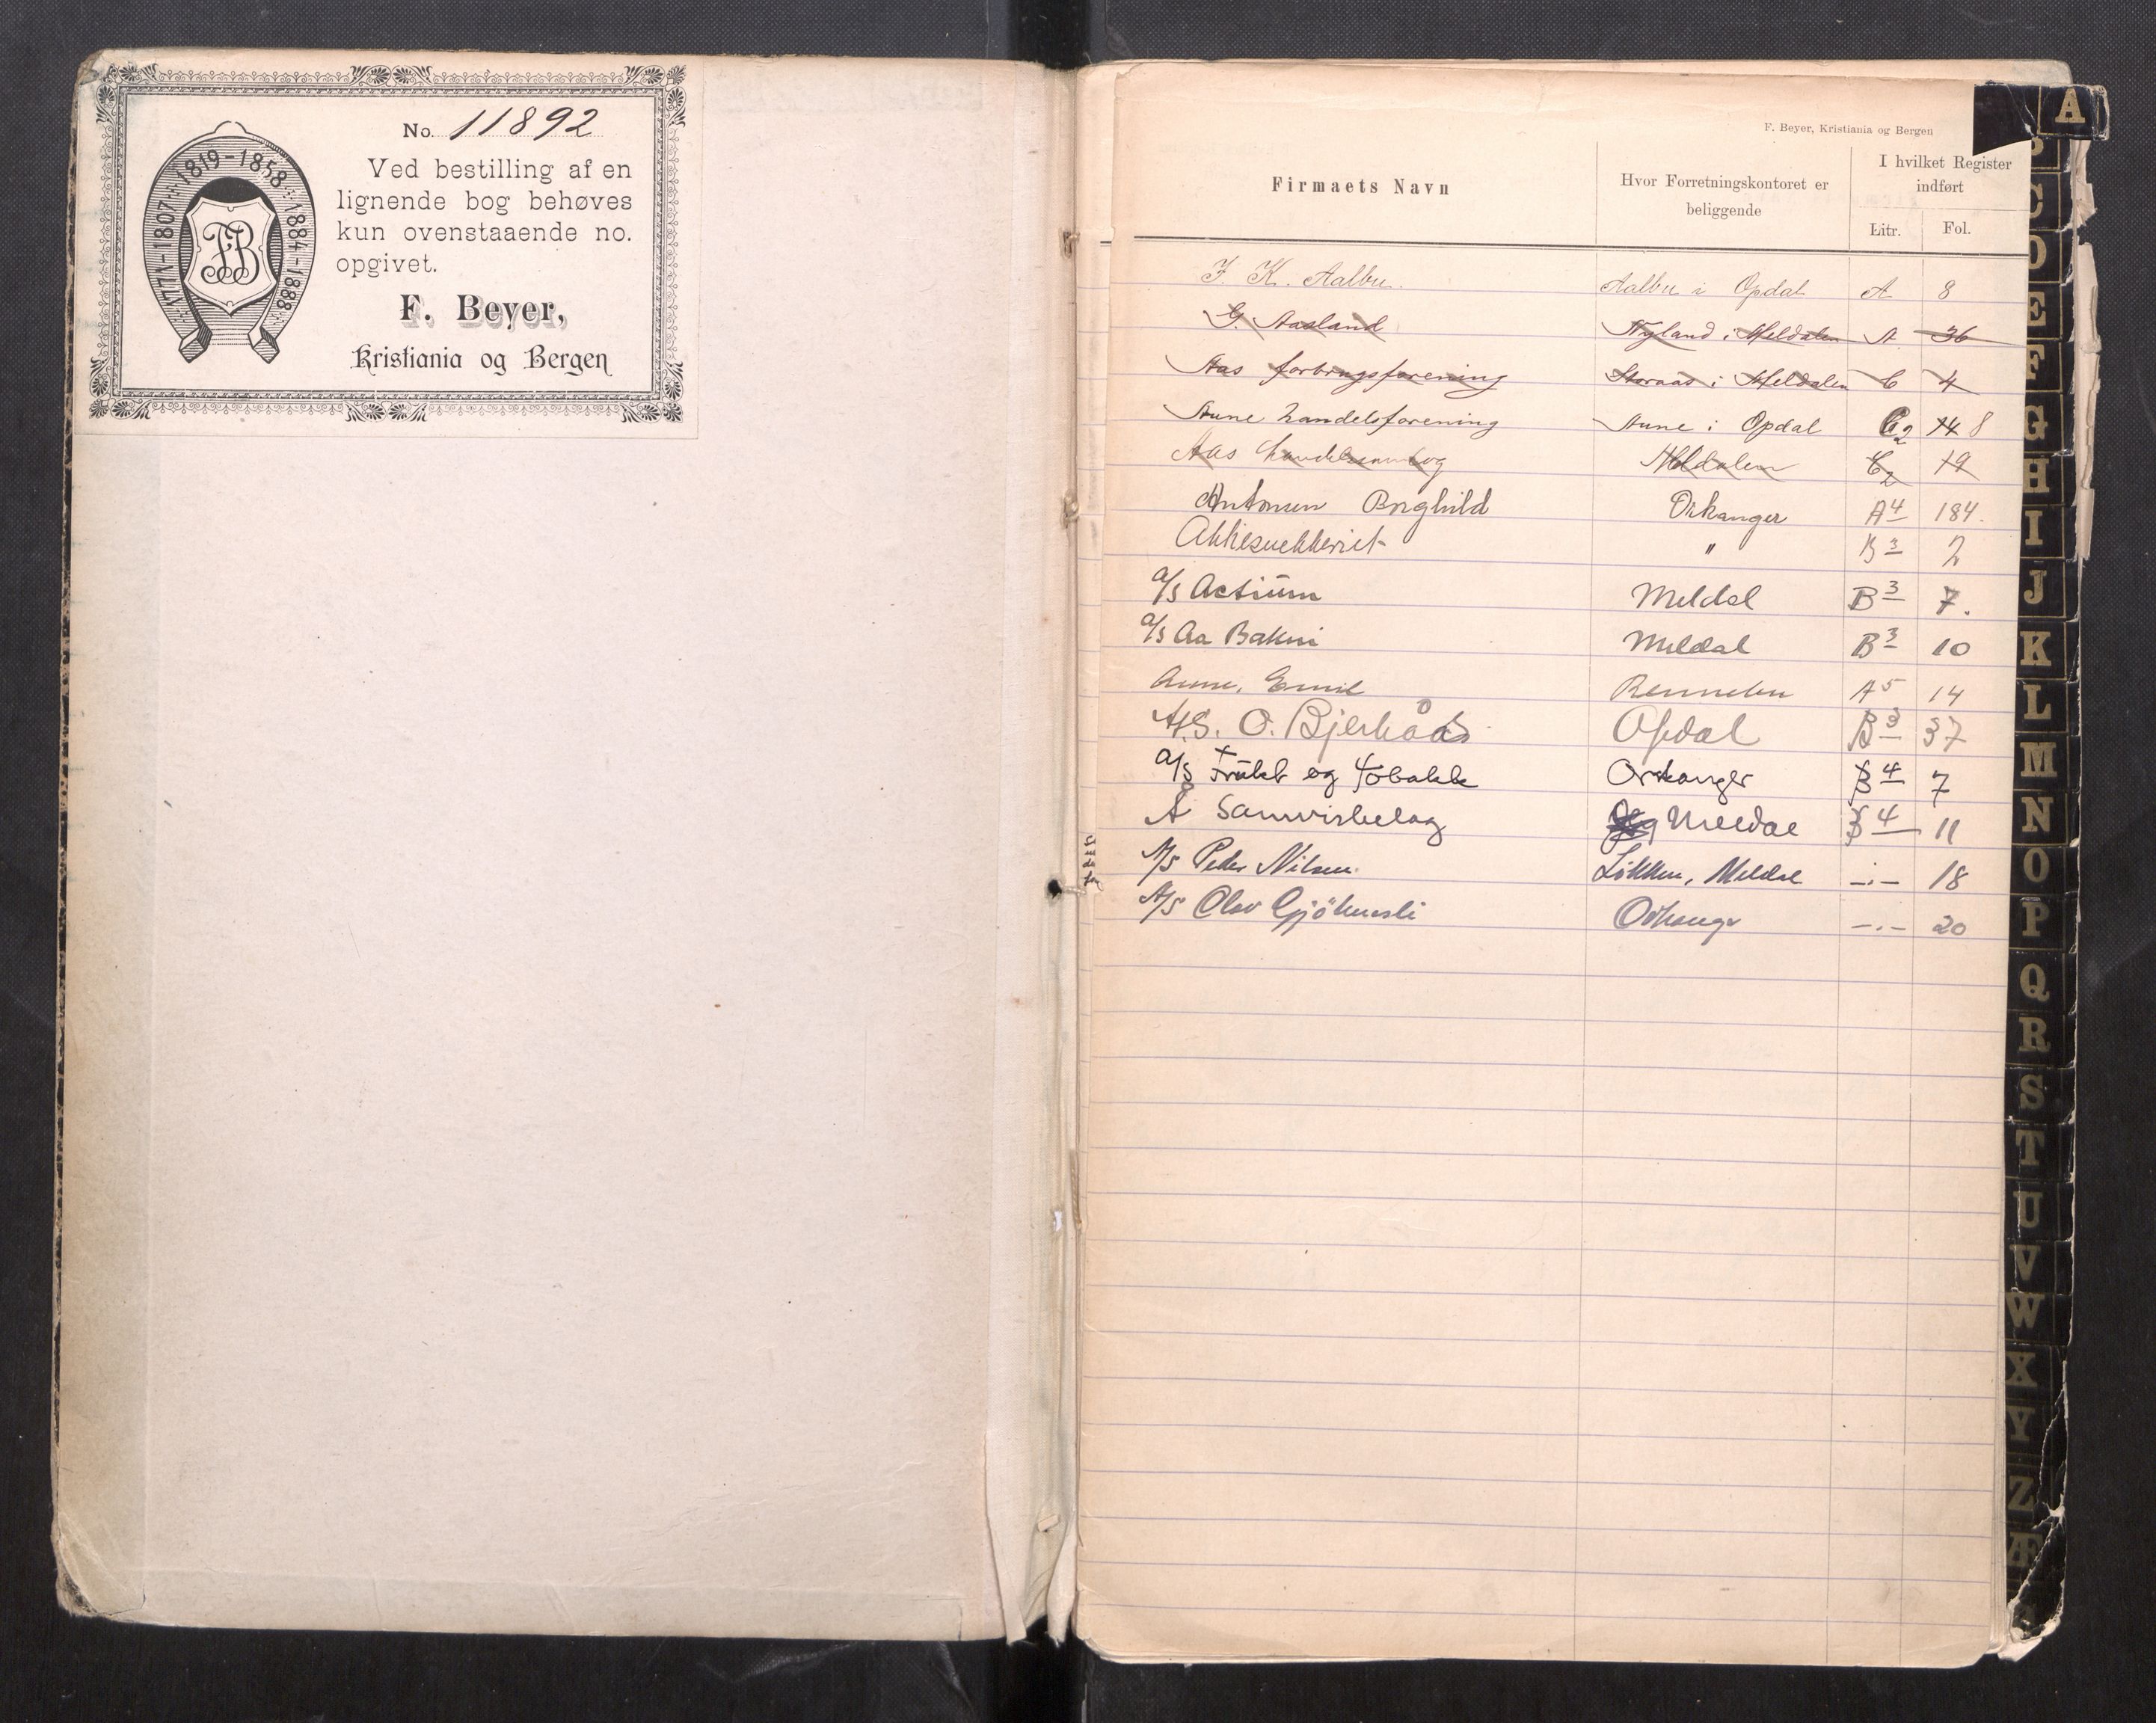 No. 11892
1771-1807-1819-1858-1884-1888
FB
Ved bestilling af en
lignende bog behøves
kun ovenstaaende no.
opgivet.
F. Beyer,
Kristiania og Bergen
F. Beyer, Kristiania og Bergen
Firmaets Navn
Hvor Forretningskontoret er
beliggende
I hvilket Register
indført
Litr. Fol.
J. K. Aalbu. Aalbu i Opdal A 8
G. Aasland Nyland i Meldalen A. 36
Aas forbrugsforening Storaas i Meldalen C 4
Aune handelsforening Aune i Opdal C2 14 8
Aas Meldalen C2 19
Antonsen Borghild Orkanger A4 184.
" B3 2
a/s Actium Meldal B3 7.
a/s Aa Bakeri Meldal B3 10
Aune, Emil Rennebu A5 14
A/S. O. Bjerkaas Opdal B3 37
a/s Frukt og Tobakk Orkanger B4 7
Å Samvirkelag Meldal B4 11
A/S Peder Nilsen. Løkken, Meldal -.- 18
A/S Olav Gjølmesli Orkanger -.- 20
A
C
D
E
F
G
H
I
J
K
L
M
N
O
P
Q
R
S
T
U
V
W
X
Y
Z
Æ